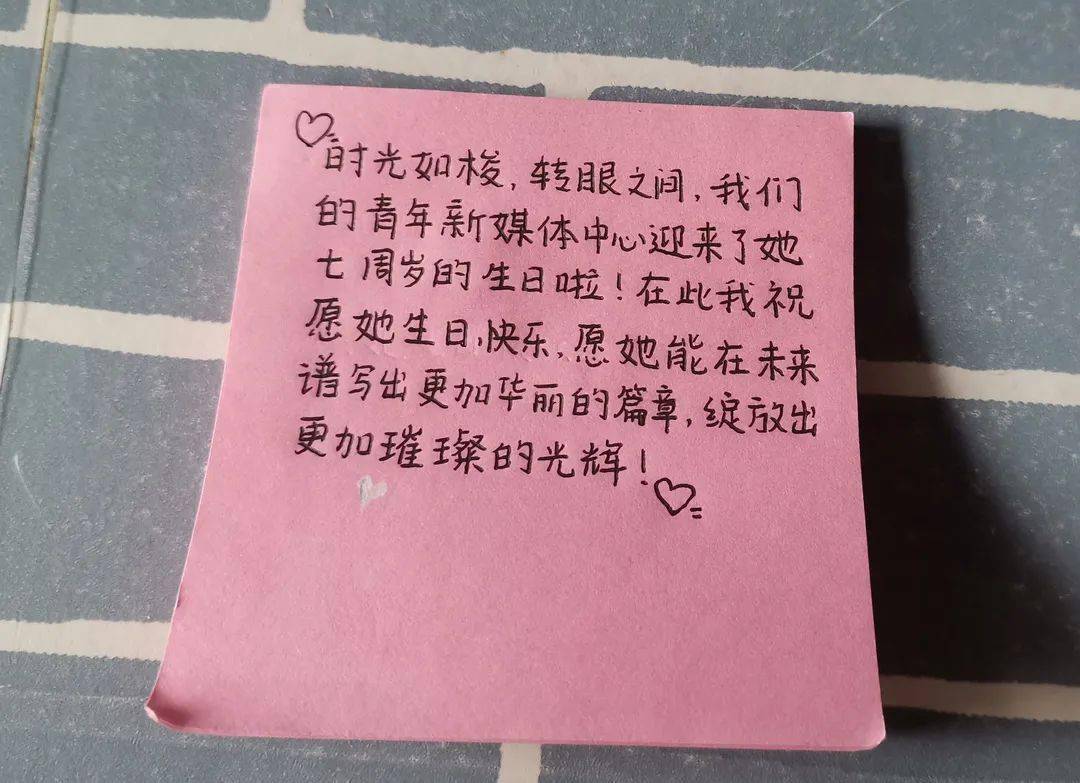 时光如梭，转眼之间，我们
的青年新媒体中心迎来了她
七周岁的生日啦！在此我祝
愿她生日快乐，愿她能在未来
谱写出更加华丽的篇章，绽放出
更加璀璨的光辉！